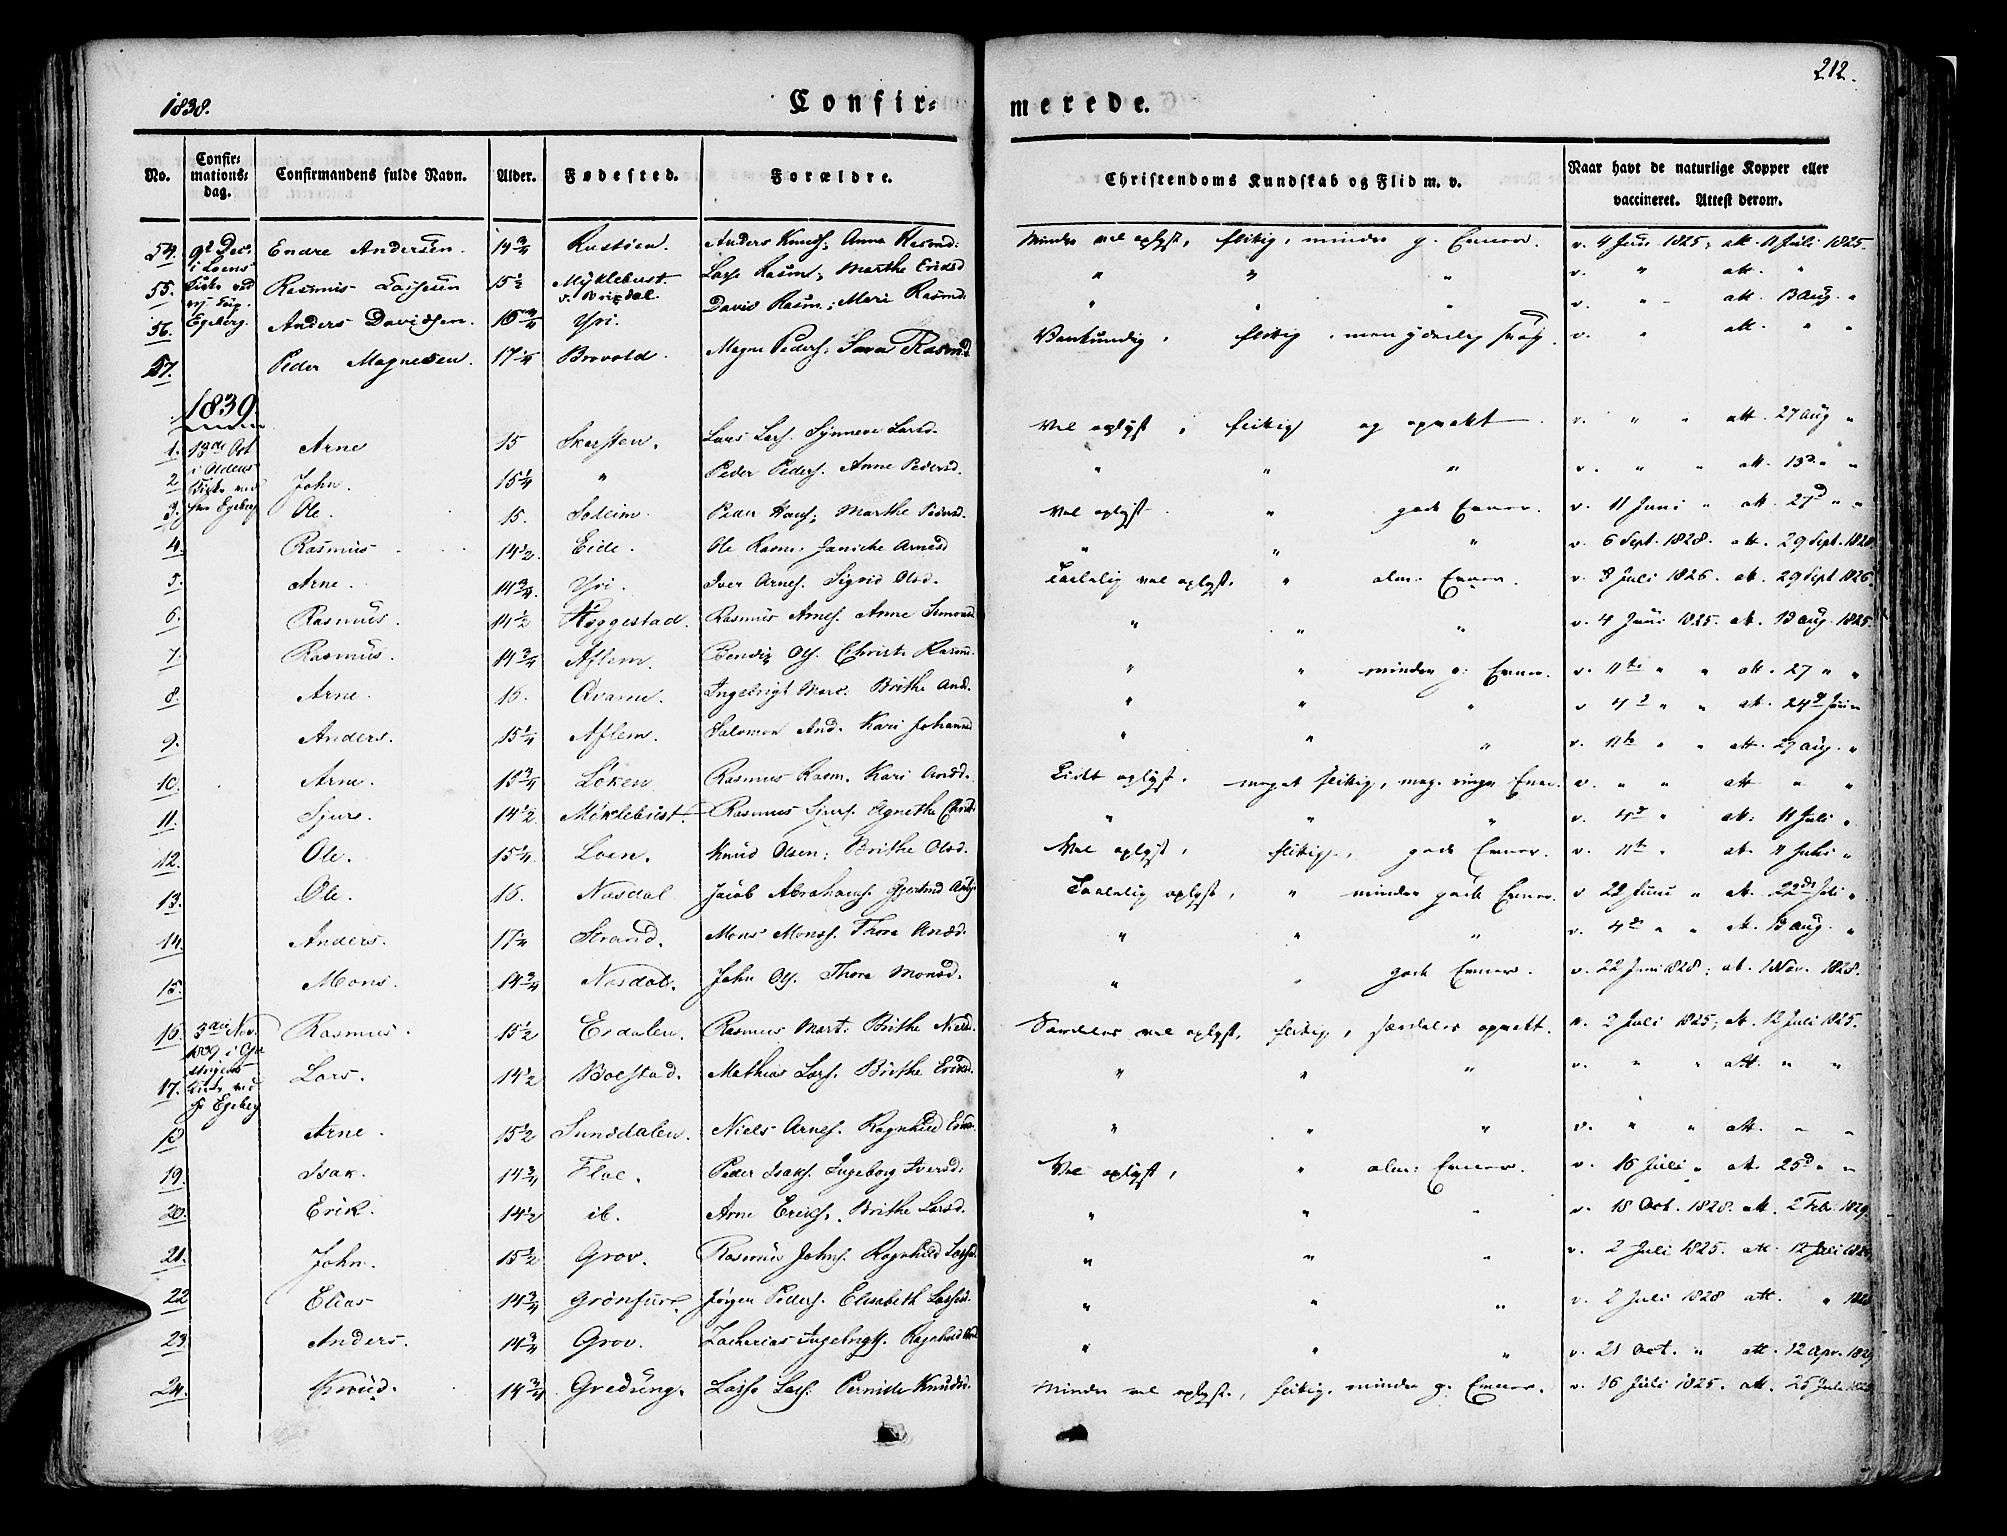 212.
1838.
Confir= merede.
No.
Confir=
mations=
dag.
Confirmandens fulde Navn.
Alder.
Fødested.
Forældre.
Christendoms Kundskab og Flid m. v.
Naar havt de naturlige Kopper eller
vaccineret. Attest derom.
54. 9d Dec. Endre Andersen. 14 3/4 Rustöen. Anders Knuds. Anna Rasmd. Minder vel oplyst, flitig, minder g. Evner. v. 4 Juni 1825, att. 11 Juli 1825.
i Loens
55. Kirke ved Rasmus Lassesen 15 1/2 Myklebust Lasse Rasm. Marthe Eriksd " " " v. " att. "
v. Brixdal.
56. Egeberg. Anders Davidsen. 16 3/4 Yri. David Rasm. Mari Rasmd. " " " v. " att. 13 Aug. "
57. Peder Magnesen. 17 1/4 Brovold. Magne Peders. Rasmd. flitig, men v. " att. " "
1839.
1. 13de Oct Arne 15 Skarsten. Lars Lars. Synneve Larsd. Vel oplyst, flitig og opvakt. v. " " att. 27 Aug "
i Oldens
2. Kirke ved John. 15 1/4 " Peder Peders. Anne Pedersd. " " " v. " " att. 13d " "
3. Hr Egeberg Ole. 15. Soleim. Peder Hans. Marthe Pedersd. Vel oplyst " gode Evner. v. 11 Juni " att. 27d " "
4. Rasmus 14 1/2. Eide. Ole Rasm. Janicke Arnesd " " " v. 6 Sept. 1828. att. 29 Sept. 1828
5. Arne. 14 3/4. Yri. Iver Arnes. Sigrid Olsd. Taalelig vel oplyst, " alm. Evner. v. 3 Juli 1826. att. 29 Sept 1826.
6. Rasmus. 14 1/2 Höggestad. Rasmus Arnes. Anne Simonsd " " " v. 4 Juni 1825. att. 13 Aug. 1825.
7. Rasmus. 14 3/4 Aflem. Bendix Ols. Christi Rasmd. " " minder g. Evner. v. 11te " " att. 27 " "
8. Arne. 15. Qvame. Ingebrigt Brithe And. " " " v. 4d " " att. 24d Juni
9. Anders. 15 1/4 Aflem. Salomon And. Kari Johannd " " " v. 11te " " att. 27 Aug. "
10. Arne. 15 3/4 Löken. Rasmus Rasm. Kari Andd. Lidt oplyst. meget flitig, meg. ringe Evner. v. " " att " "
11. Sjur. 14 1/2 Miklebust. Rasmus Sjurs. Agnethe Christ. " " " v. 4d " att. 11 Juli "
12. Ole. 15 1/4. Loen. Knud Olsen. Brithe Olsd. Vel oplyst, flitig, gode Evner. v. 11te " att. 11 Juli "
13. Ole. 16. Nesdal Jacob Abrahams. Gjertrud Taalelig oplyst, " minder gode Evner. v 22 Juni " att. 22de Juli "
14. Anders. 17 1/4 Strand. Mons Monss. Thora Andd. " " " v. 4de " " att. 13 Aug. "
15. Mons. 14 3/4 Nesdal. John Ols. Thora Monsd. " " gode Evner. v. 22 Juni 1828; att. 1 Nov. 1828.
16. 3die Nov. Rasmus. 15 1/2 Erdalen. Rasmus Mart. Brithe Nielsd Særdeles vel oplyst, flitig, særdeles opvakt. v. 2 Juli 1825; att. 12 Juli 1825.
1839 i
17. Kirke ved Lars. 14 1/2 Bolstad. Mathias Lars. Brithe Eriksd. " " " v. " " att. " "
Hr Egeberg
18. Arne. 15 1/2 Sunddalen. Niels Arnes. Ragnhild " " " v. " " att. " "
19. Isak. 14 3/4 Floe. Peder Isaks. Ingeborg Iversd. Vel oplyst, " alm. Evner. v. 16 Juli " att. 25d " "
20. Erik. 14 1/2 ib. Arne Eriks. Brithe Larsd. " " " v. 18 Oct. 1828. att. 2 Feb. 1829.
21. John. 15 1/2 Grov. Rasmus Johns. Ragnhild Lassd. " " " v. 2 Juli 1825. att. 12 Juli 1825
22 Elias 14 3/4 Grönfur. Jörgen Peders. Elisabeth Lassed. " " " v. 2 Juli 1828 att. " 1828
23. Anders. 14 3/4 Grov. Zacharias Ingebrigts. Ragnhild " " " v. 21 Oct. " att. 12 Apr. 1829
24. Knud. 14 3/4 Gredung. Lasse Lass. Pernille Knudsd. Minder vel oplyst, flitig, minder g. Evner. v. 16 Juli 1825. att. 25 Juli 1825